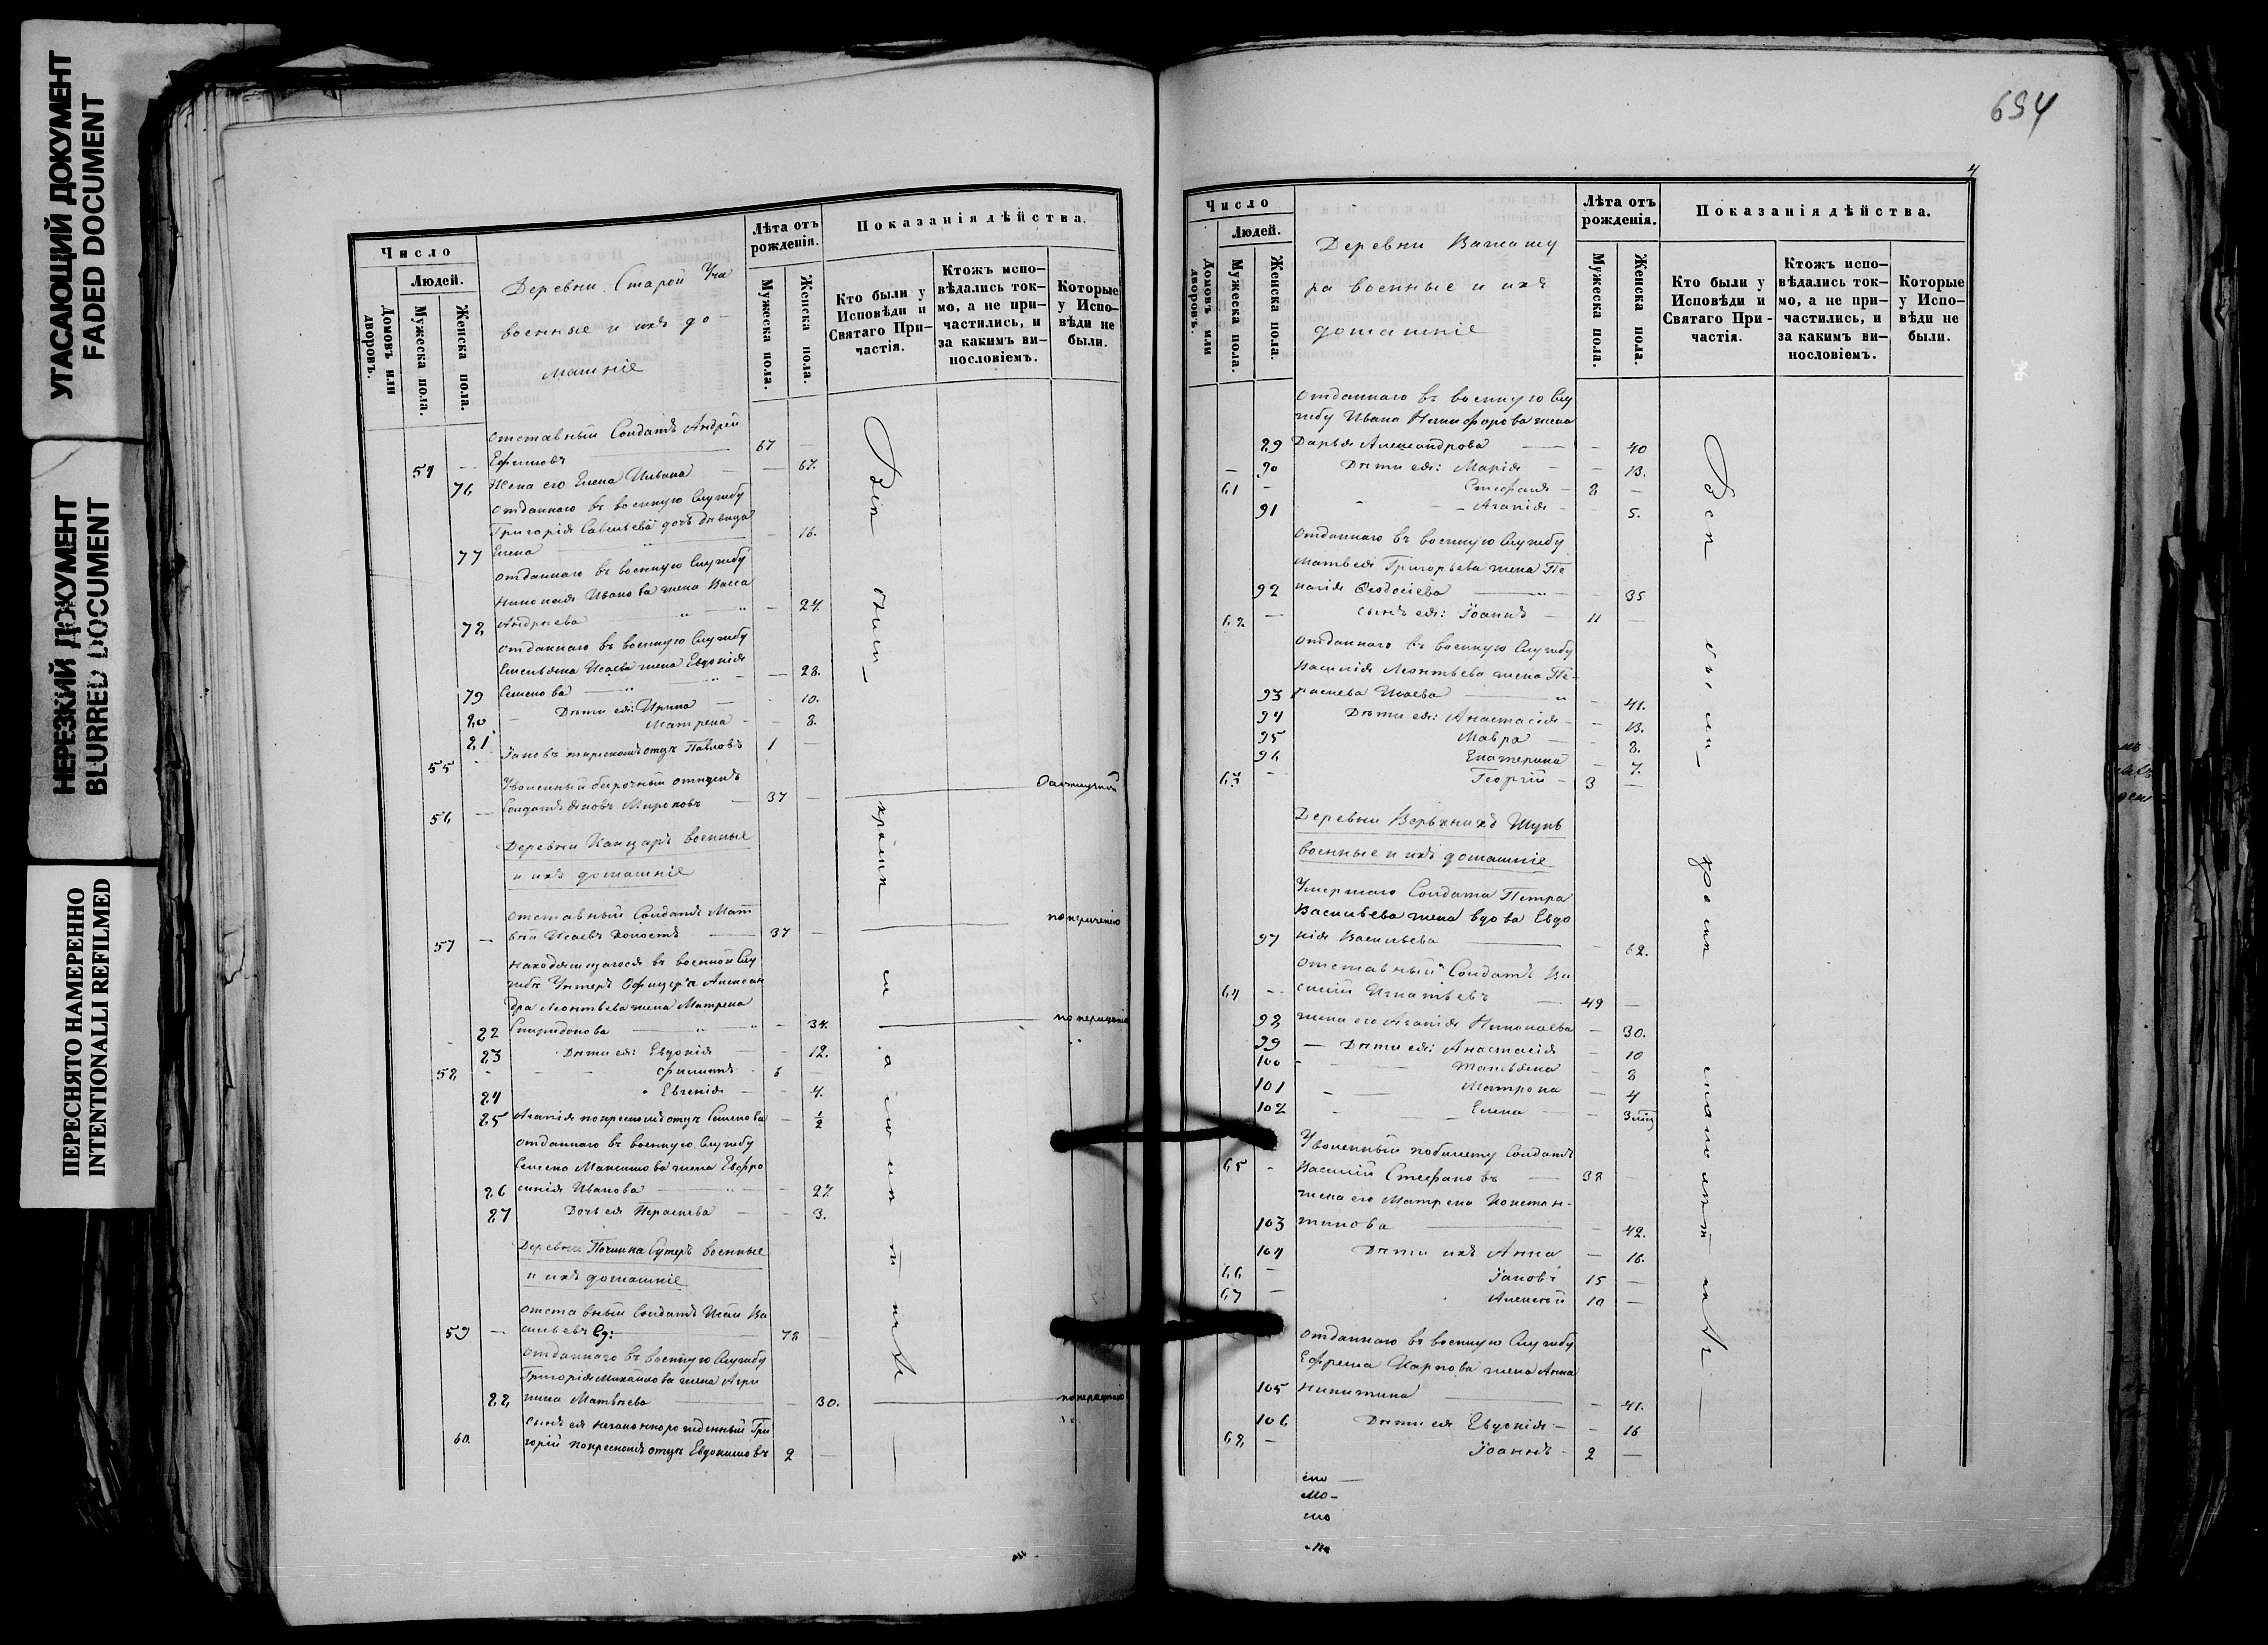 УГАСАЮЩИЙ ДОКУМЕНТ
FADED DOCUMENT
НЕРЕЗКИЙ ДОКУМЕНТ
BLURRED DOCUMENT
ПЕРЕСНЯТО НАМЕРЕННО
INTENTIONALLI REFILMED
Число
Людей.
Домовъ или дворовъ.
Мужеска пола.
Женска пола.
Деревни Старой Уча
военные и ихъ до-
машніе
Лѣта отъ рожденія.
Мужеска пола.
Женска пола.
Показанія дѣйства.
Кто были у Исповѣди и Святаго При-частія.
Ктожъ испо-вѣдались ток-мо, а не при-частились, и за какимъ ви-нословіемъ.
Которые у Испо-вѣди не были.
отставный Солдатъ Андрей
54 — Ефимовъ 67 —
76 Жена его Елена Ильина — 67.
отданнаго въ военную Службу
Григорія Савельева дочь дѣвица
77 Елена — 16.
отданнаго въ военную Службу
Николая Ивановa жена Васса
78 Андреева — 24.
отданнаго въ военную Службу
Емельяна Исаева жена Евдокія
79 Семенова — 28.
80 Дѣти ея: Ирина — 10.
81 Матрена — 8.
55 - Іаковъ покрестномъ отцѣ Павловъ 1 —
Уволенный безсрочный отпускъ
56 — Солдатъ Яковъ Мироновъ 37 —
Деревни Канцаръ военные
и ихъ домашніе
отставный Солдатъ Мат
57 — вѣй Исаевъ холостъ 37 —
находящагося въ военной Слу
жбѣ Унтеръ Офицера Алексан
дра Леонтьева жена Матрена
82 Спиридонова — 34.
83 Дѣти ея: Евдокія — 12.
58 - Филиппъ 6 —
84 Евгенія — 4.
85 Агапія покрестномъ отцѣ Семенова — ½
отданнаго въ военную Службу
Семена Максимова жена Евфро
86 синія Иванова — 27.
87 Дочь ея Параскева — 3.
Деревни Починка Сутеръ военные
и ихъ домашніе
отставный Солдатъ Ва
59 — сильевъ 78 —
отданнаго въ военную Службу
Григорія Михайлова жена Агри
88 пина Матвѣева — 30.
сынъ ея незаконнорожденный Гри
60. горій покрестномъ отцѣ Евдокимовъ 2 —
Всѣ были
кромѣ
694
4
Число
Людей.
Домовъ или дворовъ.
Мужеска пола.
Женска пола.
Деревни Вагашу
ра военные и ихъ
домашніе
Лѣта отъ рожденія.
Мужеска пола.
Женска пола.
Показанія дѣйства.
Кто были у Исповѣди и Святаго При-частія.
Ктожъ испо-вѣдались ток-мо, а не при-частились, и за какимъ ви-нословіемъ.
Которые у Испо-вѣди не были.
отданнаго въ военную Слу
жбу Ивана Никифорова жена
89 Дарья Александрова — 40
— 90 Дѣти ея: Марія — 13.
61 - Стефанъ 8 —
91 Агапія — 5.
отданнаго въ военную Службу
Матвея Григорьева жена Пе
92 лагія Феодосіева — 35
62 — сынъ ея: Іоаннъ 11 —
отданнаго въ военную Службу
Василія Леонтьева жена Па-
93 раскева Исаева — 41.
94 Дѣти ея: Анастасія — 13.
95 Мавра — 8.
96 Екатерина — 7.
63 - Георгій 3 —
Деревни Верьхнихъ Шунь
военные и ихъ домашніе
Умершаго Солдата Петра
Васильева жена вдова Евдо
97 кія Васильева — 62.
отставный Солдатъ Ва
64 — силій Игнатьевъ 49 —
98 жена его Агапія Николаева — 30.
99 — Дѣти ея: Анастасія — 10
100 Татьяна — 8
101 Матрона — 4
102 Елена — 3 мѣс
Уволенный по билету Солдатъ
65 - Василій Стефановъ 38 —
жена его Матрена Констан-
103 тинова — 42.
104 Дѣти ихъ Анна — 16.
66 — Іаковъ 15 —
67 — Алексѣй 10 —
отданнаго въ военную Службу
Ефрема Карпова жена Анна
105 Никитина — 41.
106 Дѣти ея Евдокія — 16
68 — Іоаннъ 2 —
Всѣ были
кромѣ
малолѣтнихъ